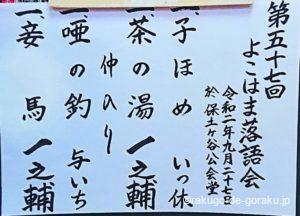 第五十七回
よこはま落語会
令和二年九月二十七日
於 保土ヶ谷公会堂
一、子ほめ いっ休
一、茶の湯 一之輔
仲入り
一、唖の釣 与いち
一、妾馬 一之輔
©rakugo-de-goraku.jp